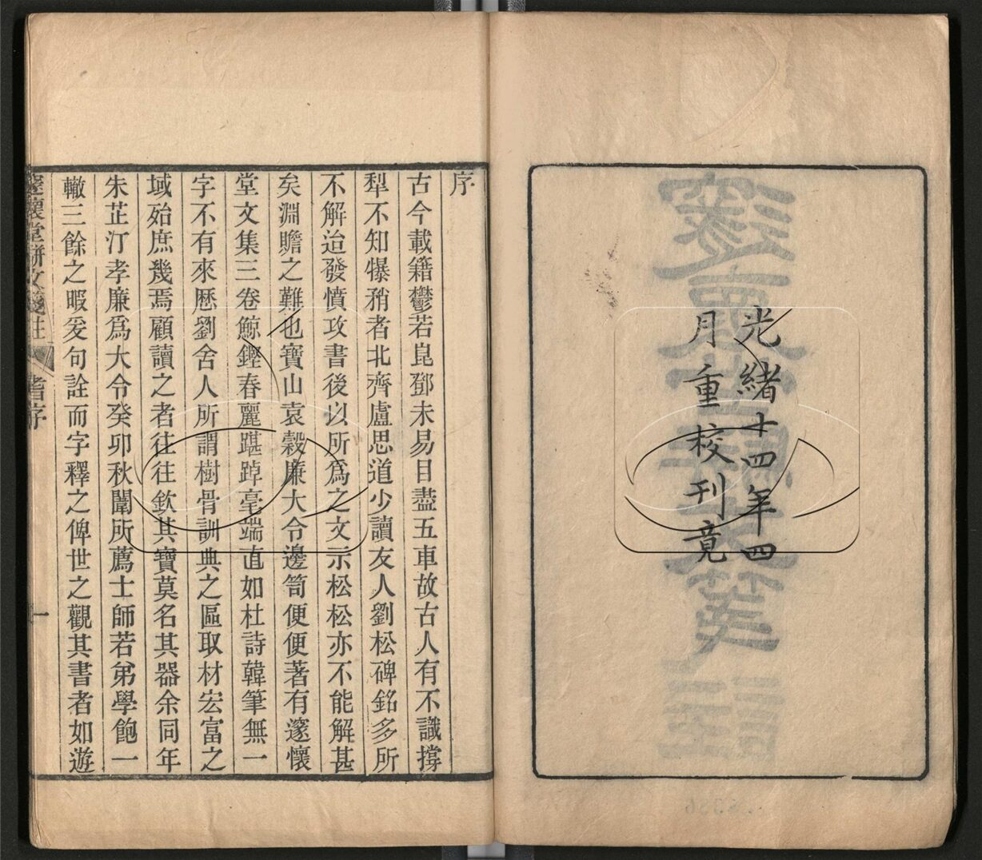 光緒十四年四
月重校刊竟
序
古今載籍鬱若崑鄧未易目盡五車故古人有不識撐
犁不知犦矟者北齊盧思道少讀友人劉松碑銘多所
不解迨發憤攻書後以所爲之文示松松亦不能解甚
矣淵贍之難也寶山袁穀廉大令邊笥便便著有邃懷
堂文集三卷鯨鏗春麗踸踔毫端直如杜詩韓筆無一
字不有來歷劉舍人所謂樹骨訓典之區取材宏富之
域始庶幾焉顧讀之者往往欽其寶莫名其器余同年
朱芷汀孝廉爲大令癸卯秋闈所薦士師若弟學飽一
轍三餘之暇爰句詮而字釋之俾世之觀其書者如遊
邃懷堂駢文箋註 耆序 一